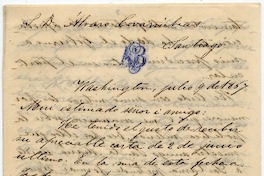 S. Dn Alvaro Covarrubias
Santiago
Washington, julio 9 de 1867
Mui estimado señor i amigo:
He tenido el gusto de recibir
su apreciable carta de 2 de junio
último. En la de esta fecha a